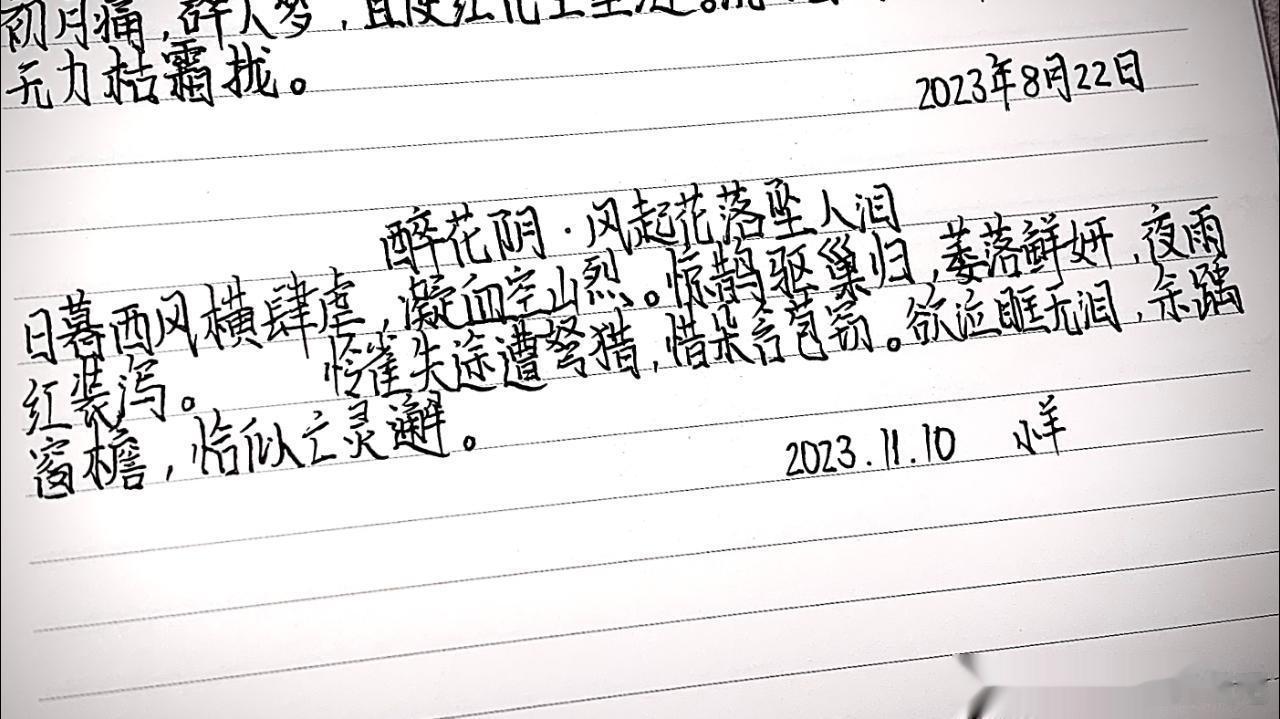 明月痛，碎人梦，且使红化
无力枯霜拢。
2023年8月22日
醉花阴·风起花落坠人泪
日暮西风横肆虐，凝血空山烈。惊鹊驱巢归，萎落鲜妍，夜雨
红装泻。 怜雀失途遭弩猎，惜朵含苞窃。欲泣眶无泪，余踽
窗檐，恰似亡灵邂。
2023.11.10 小羊